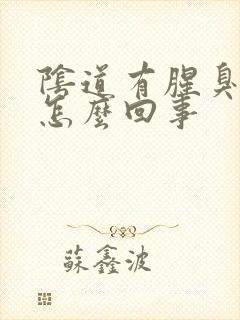 陰道有腥臭
怎麼回事
蘇鑫波